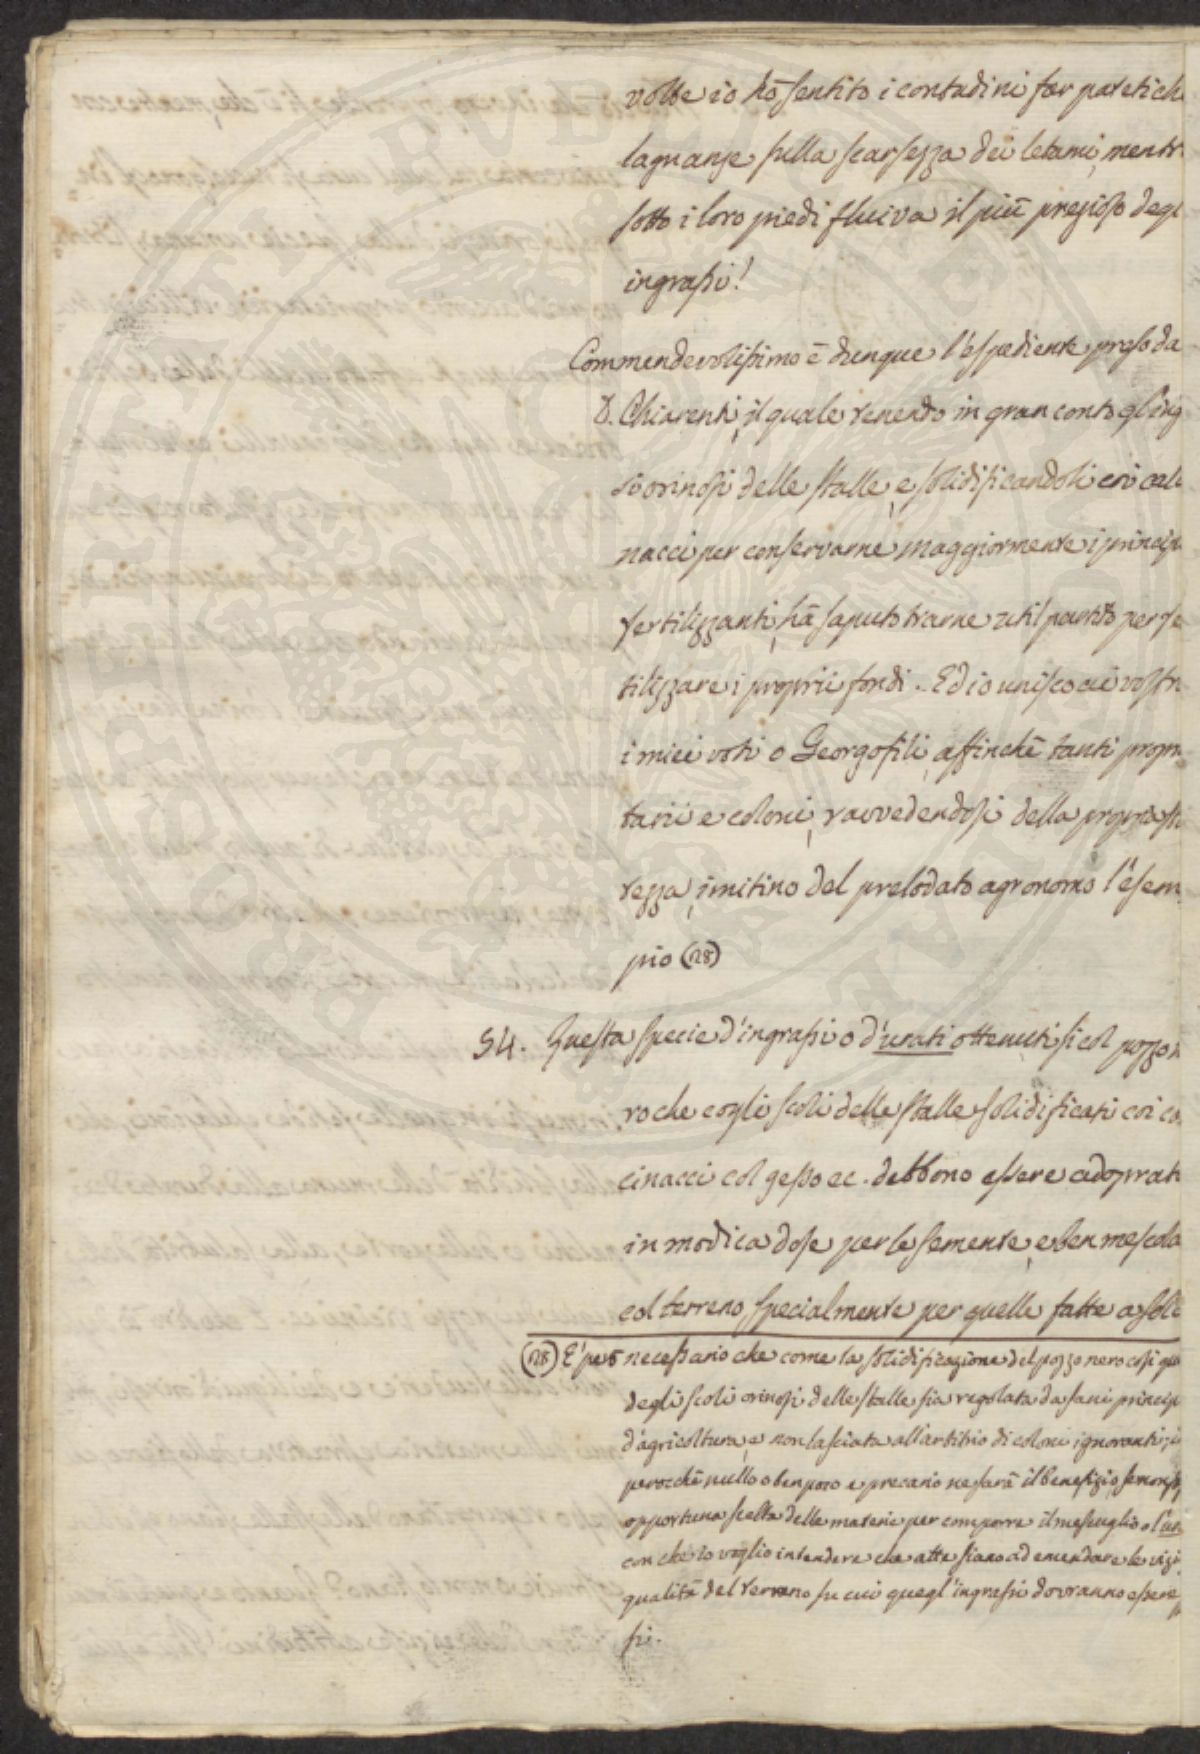 volte io hò sentito i contadini far patetich
lagnanze sulla scarsezza dei letami, mentr
sotto i loro piedi fluiva il più prezioso degl
ingrassi!
Commendevolissimo è dunque l'espediente preso da
D. Chiarenti, il quale tenendo in gran conto gl'ing
si orinosi delle stalle, e solidificandoli coi calc
nacci per conservarne maggiormente i princip
fertilizzanti, hà saputo trarne util partito per fe
tilizzare i proprii fondi. Ed io unisco ai vostri
i miei voti o Georgofili, affinchè tanti propri
tarii e coloni, ravvedendosi della propria st
tezza, imitino del prelodato agronomo l'esem
pio (28)
54. Questa specie d'ingrassi o d'urati ottenuti sì col pozzo n
ro che cogli scoli delle stalle solidificati coi ca
cinacci col gesso ec. debbono essere adoprati
in modica dose per le semente, e ben mescola
col terreno, specialmente per quelle fatte a sol
(28) E' però necessario che come la solidificazione del pozzo nero così que
degli scoli orinosi delle stalle sia regolata da sani princip
d'agricoltura, e non lasciata all'arbitrio di coloni ignoranti; i
perocchè nullo o ben poco e precario ne sarà il benefizio, se non si
opportuna scelta delle materie per comporre il mescuglio o l'ur
con che io voglio intendere che atte siano ad emendare le vizi
qualità del terreno su cui quegl'ingrassi dovranno essere
si.
PROSPERITATI PVBLICAE